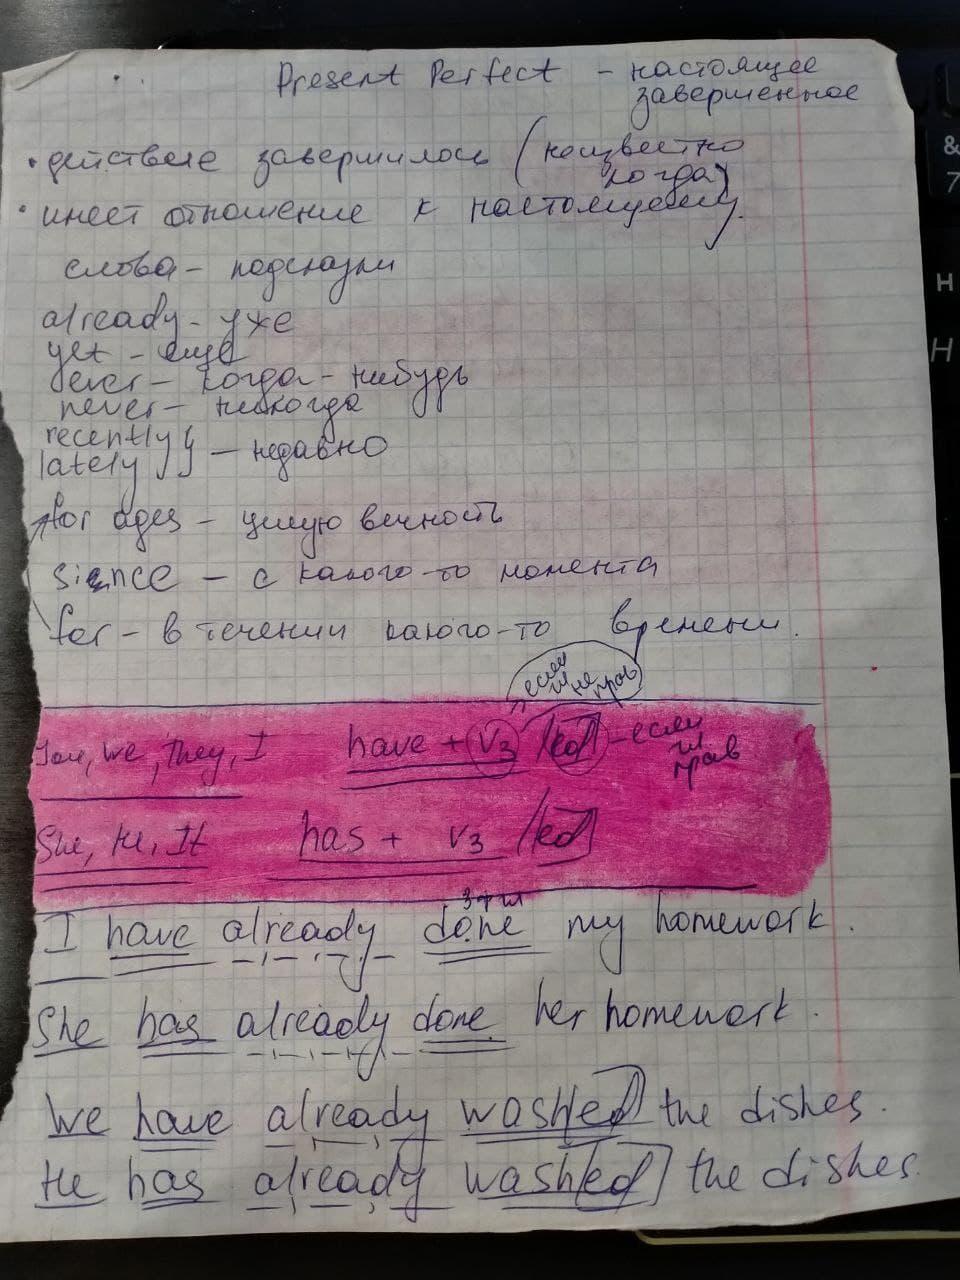 Present Perfect – настоящее
завершенное
• действие завершилось (неизвестно
когда)
• имеет отношение к настоящему.
слова – подсказки
already – уже
yet – еще
ever – когда-нибудь
never – никогда
recently } – недавно
lately }
for ages – целую вечность
sience – с какого-то момента
for – в течении какого-то времени.
если гл не прав
You, We, They, I have + V3 /ed – если гл прав
She, He, It has + V3 /ed
3 ф гл
I have already done my homework.
She has already done her homework.
We have already washed the dishes.
He has already washed the dishes.
&
7
H
H